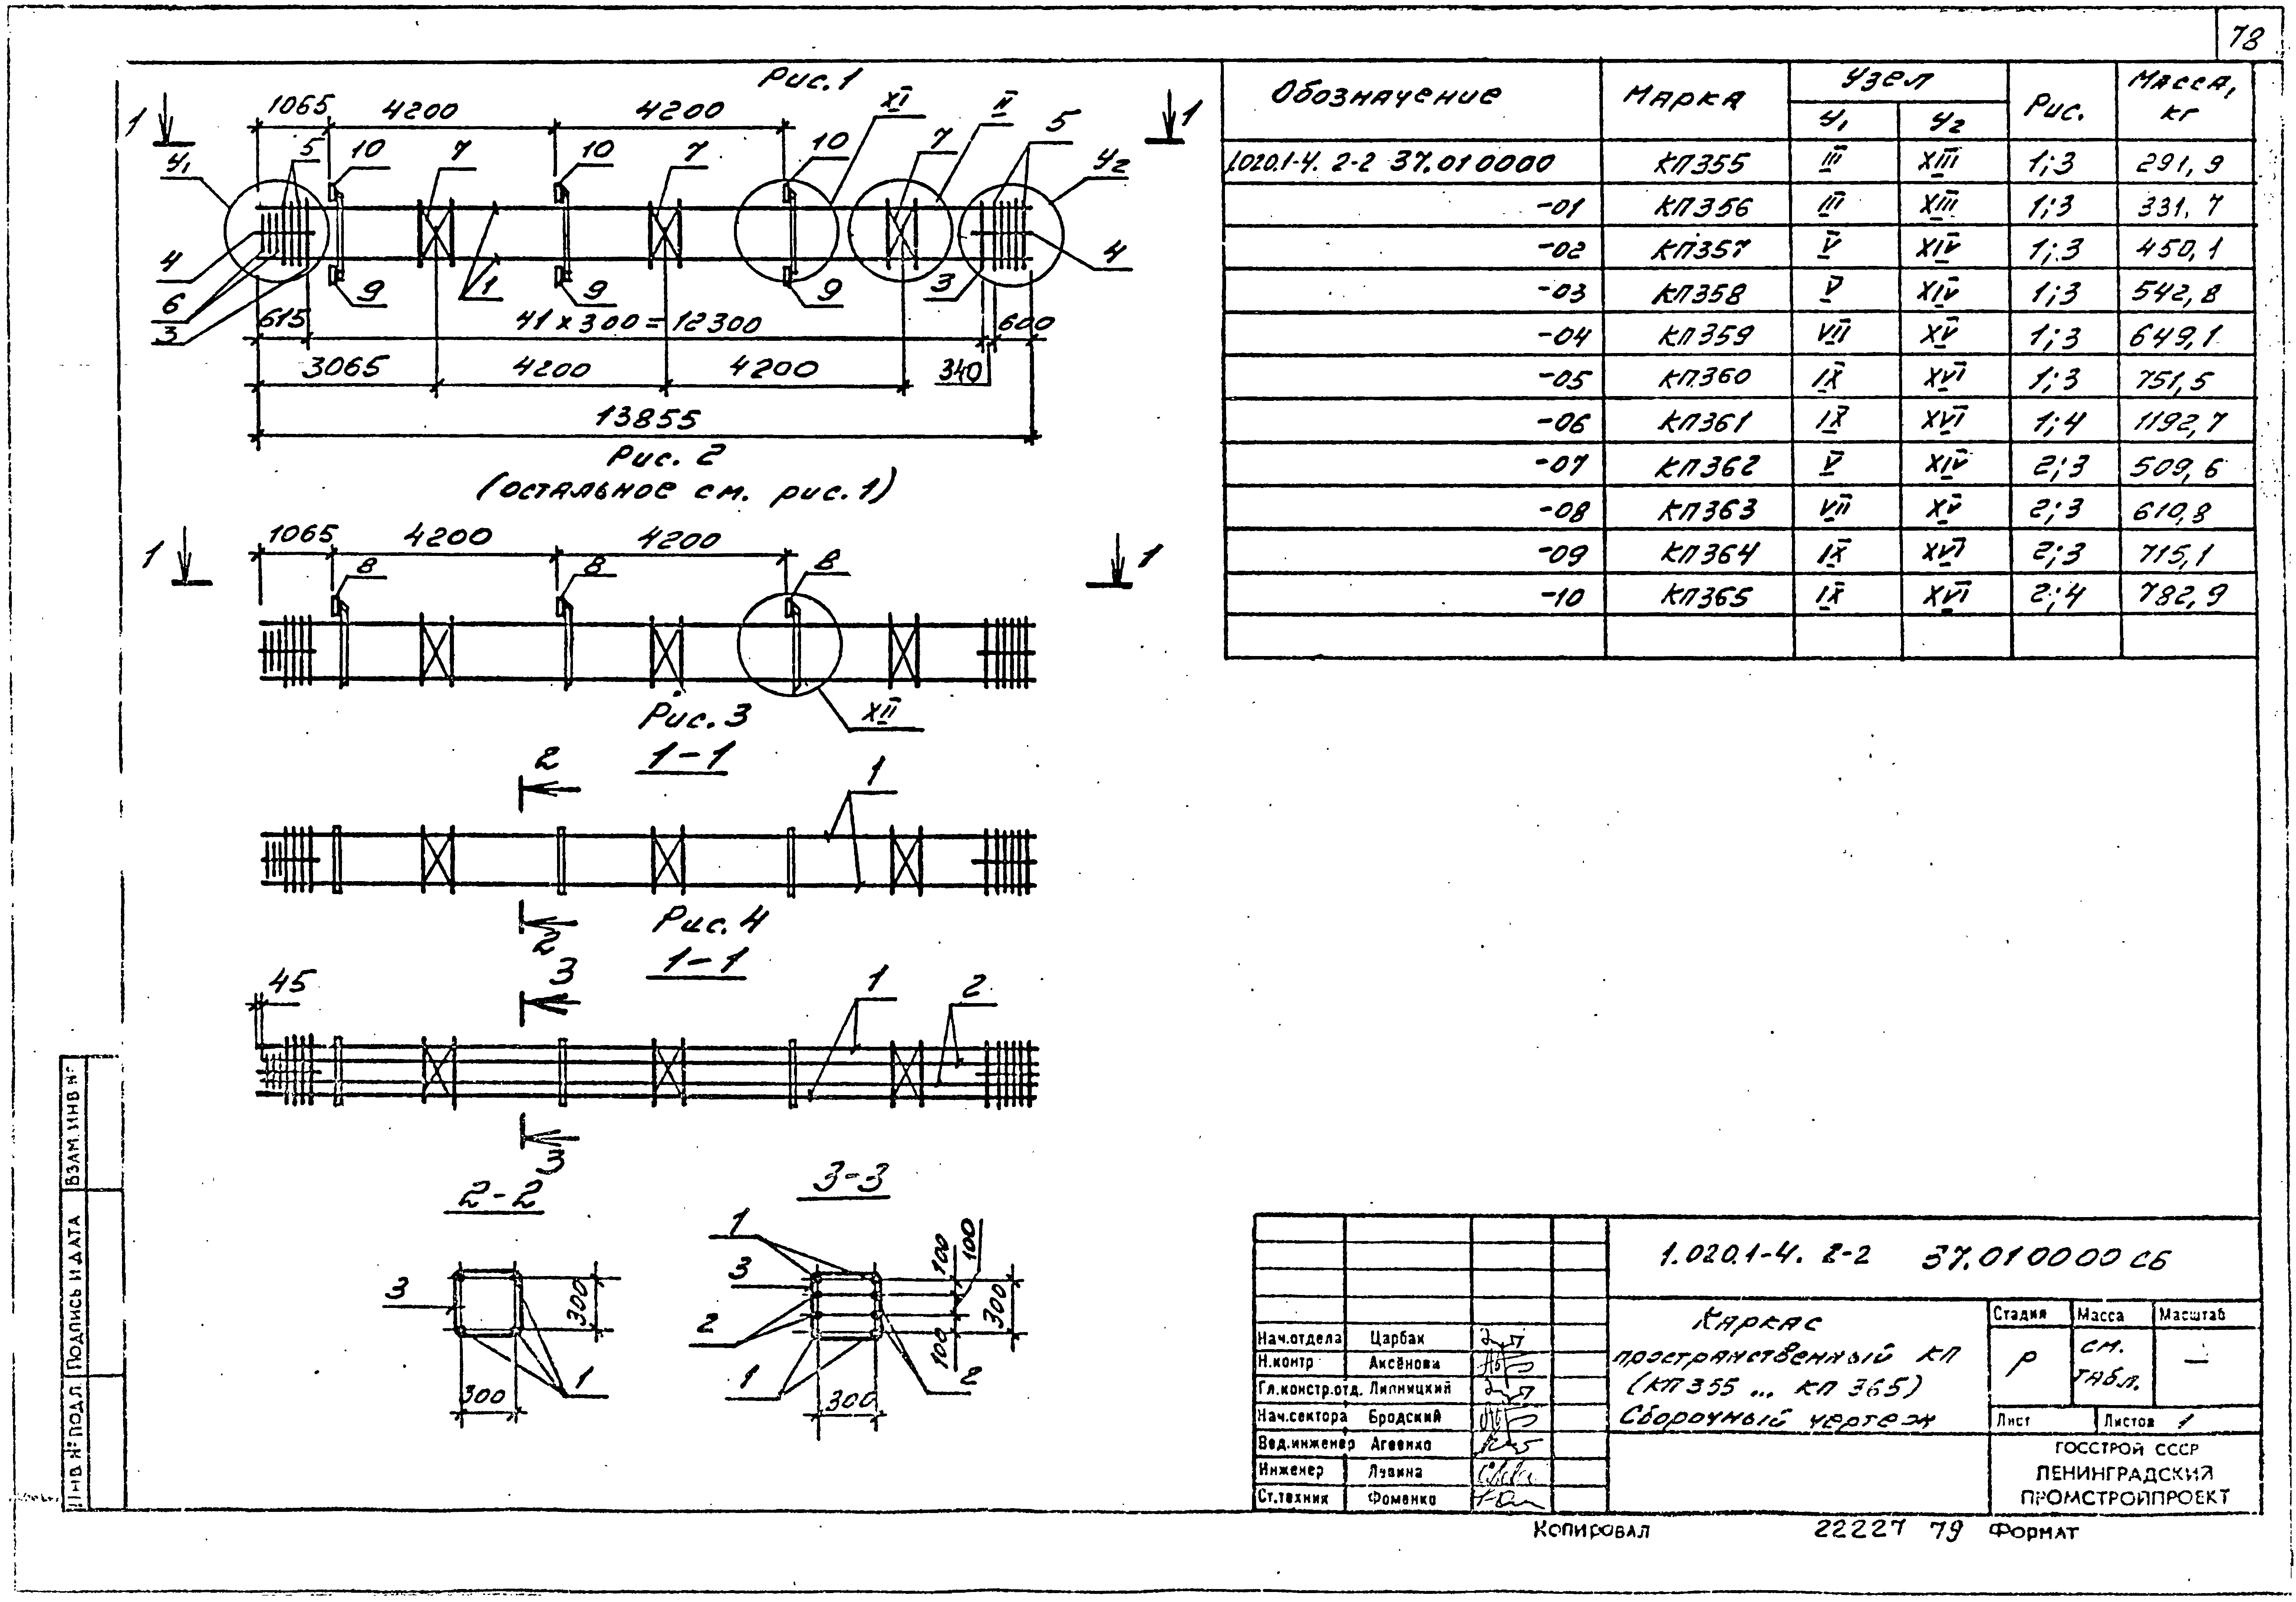 78
Рис. 1
1065 4200 4200
1 1
У1 5 10 7 10 7 10 XI 7 II 5 У2
4 6 3 9 1 9 9 3 4
615 41 х 300 = 12300 600
3065 4200 4200 340
13855
Рис. 2
(остальное см. рис. 1)
1065 4200 4200
1 1
8 8 8
XII
Рис. 3
1-1
2 1
2
Рис. 4
1-1
45 3 1 2
3
2-2
3 300 300 1
3-3
1 3 2 1 100 100 100 300 300 2
Обозначение Марка Узел Рис. Масса, кг
У1 У2
1.020.1-4. 2-2 37.010000 КП355 III XIII 1;3 291,9
-01 КП356 III XIII 1;3 331,7
-02 КП357 V XIV 1;3 450,1
-03 КП358 V XIV 1;3 542,8
-04 КП359 VII XV 1;3 649,1
-05 КП360 IX XVI 1;3 751,5
-06 КП361 IX XVI 1;4 1192,7
-07 КП362 V XIV 2;3 509,6
-08 КП363 VII XV 2;3 610,8
-09 КП364 IX XVI 2;3 715,1
-10 КП365 IX XVI 2;4 782,9
1.020.1-4. 2-2 37.010000 СБ
Каркас
пространственный КП
(КП355 ... КП 365)
Сборочный чертеж
Стадия Масса Масштаб
Р см. табл. —
Лист Листов 1
ГОССТРОЙ СССР
ЛЕНИНГРАДСКИЙ
ПРОМСТРОЙПРОЕКТ
Нач.отдела Царбак
Н.контр Аксёнова
Гл.констр.отд. Липницкий
Нач.сектора Бродский
Вед.инженер Агеенко
Инженер Лувина
Ст.техник Фоменко
Копировал 22227 79 Формат
ВЗАМ.ИНВ №
Подпись и дата
Инв № подл.